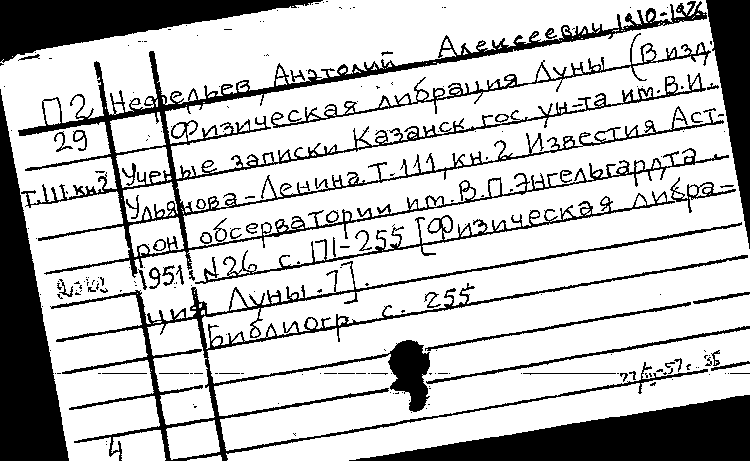 Нефедьев, Анатолий Алексеевич, 1910-1976
П2 Физическая либрация Луны (В изд:
29
Т.111.кн2 Ученые записки Казанск. гос. ун-та им. В.И.
Ульянова-Ленина Т.111, кн.2 Известия Аст-
рон. обсерватории им. В.П. Энгельгардта.
1951 N26 с. П1-255 [Физическая либра-
ция Луны.1].
Библиогр. с. 255
4